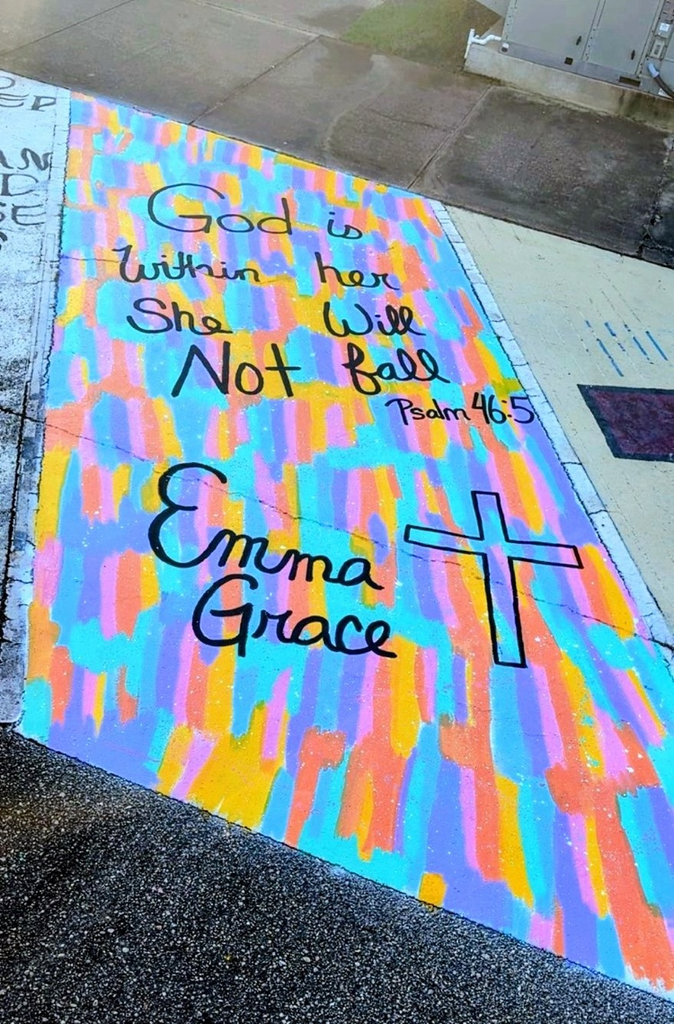 God is
Within her
She Will
Not fall
Psalm 46:5
Emma
Grace